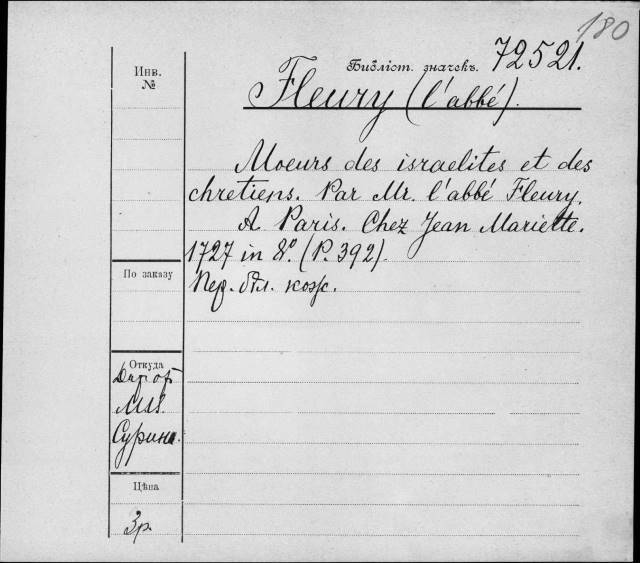 180
Библіот. значекъ. 72521.
Инв.
№
Fleury (l'abbé).
Moeurs des israelites et des
chretiens. Par Mr. l'abbé Fleury.
A Paris. Chez Jean Mariette.
1727 in 8º. (P. 392).
По заказу
Пер. бѣл. кож.
Откуда
Цѣна
3р.